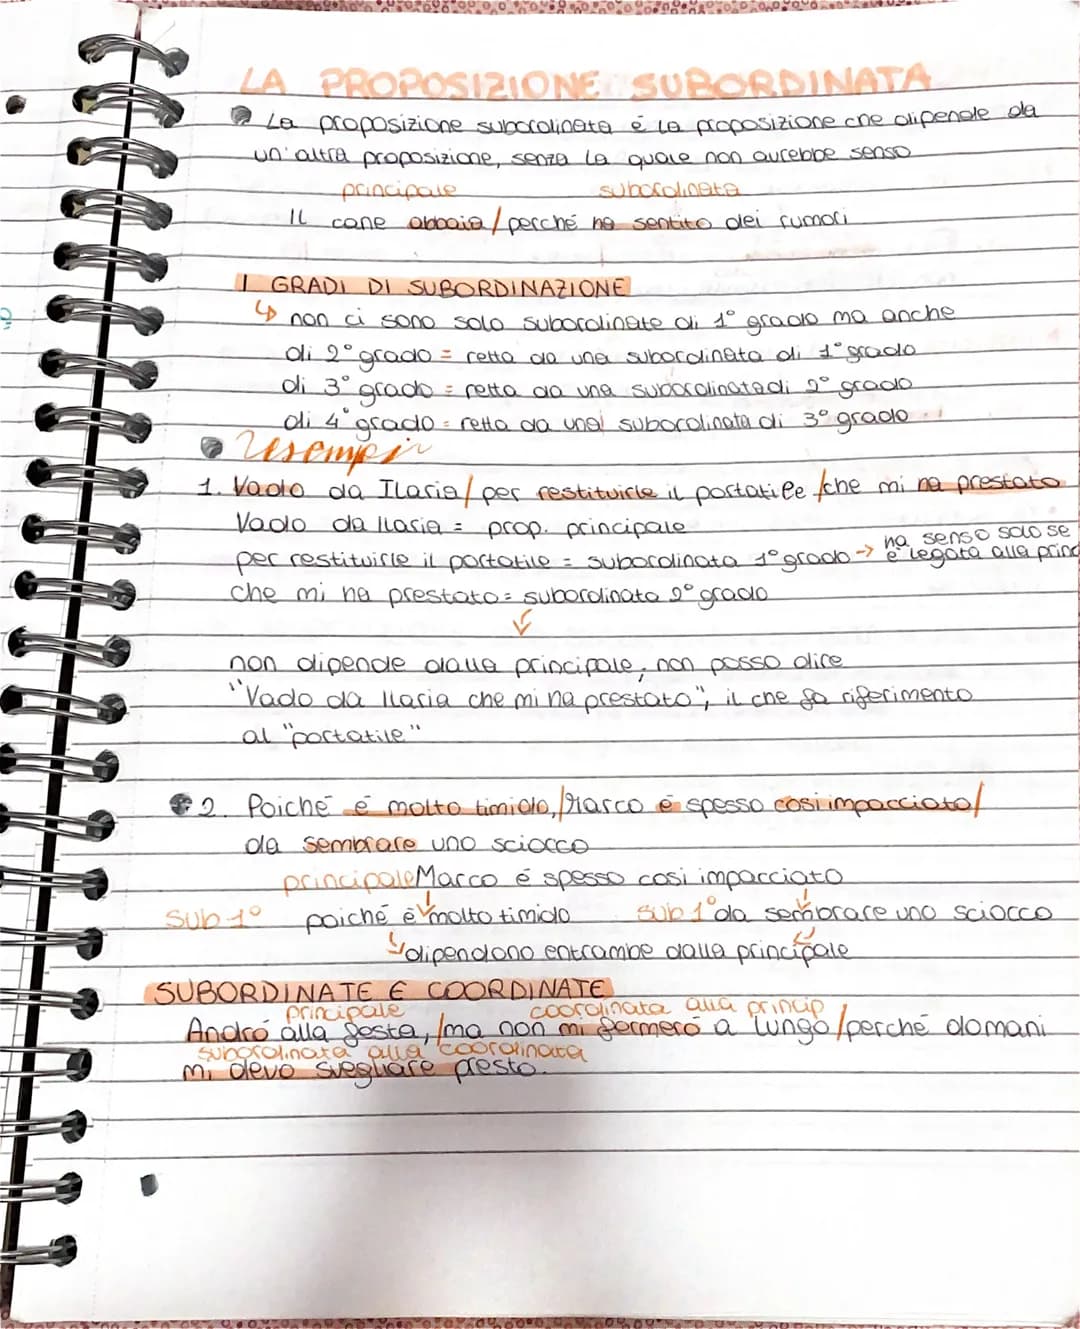 LA PROPOSIZIONE SUBORDINATA
La proposizione subordinata é la proposizione che dipende da
un'altra proposizione, senza la quale non avrebbe senso
principale subordinata
IL cane abbaia / perché ha sentito dei rumori
I GRADI DI SUBORDINAZIONE
↳ non ci sono solo subordinate di 1° grado ma anche
di 2° grado = retta da una subordinata di 1° grado
di 3° grado = retta da una subordinata di 2° grado
di 4° grado = retta da una subordinata di 3° grado
Esempi
1. Vado da Ilaria / per restituirle il portatile / che mi ha prestato
Vado da Ilaria = prop. principale
per restituirle il portatile = subordinata 1° grado → ha senso solo se
è legata alla princ
che mi ha prestato = subordinata 2° grado
↓
non dipende dalla principale, non posso dire
"Vado da Ilaria che mi ha prestato", il che fa riferimento
al "portatile"
2. Poiché é molto timido, / Marco é spesso così impacciato /
da sembrare uno sciocco
principale Marco é spesso così impacciato
Sub 1° poiché è molto timido Sub 1° da sembrare uno sciocco
↳ dipendono entrambe dalla principale
SUBORDINATE E COORDINATE
principale coordinata alla princip
Andró alla festa, / ma non mi fermeró a lungo / perché domani
subordinata alla coordinata
mi devo svegliare presto.